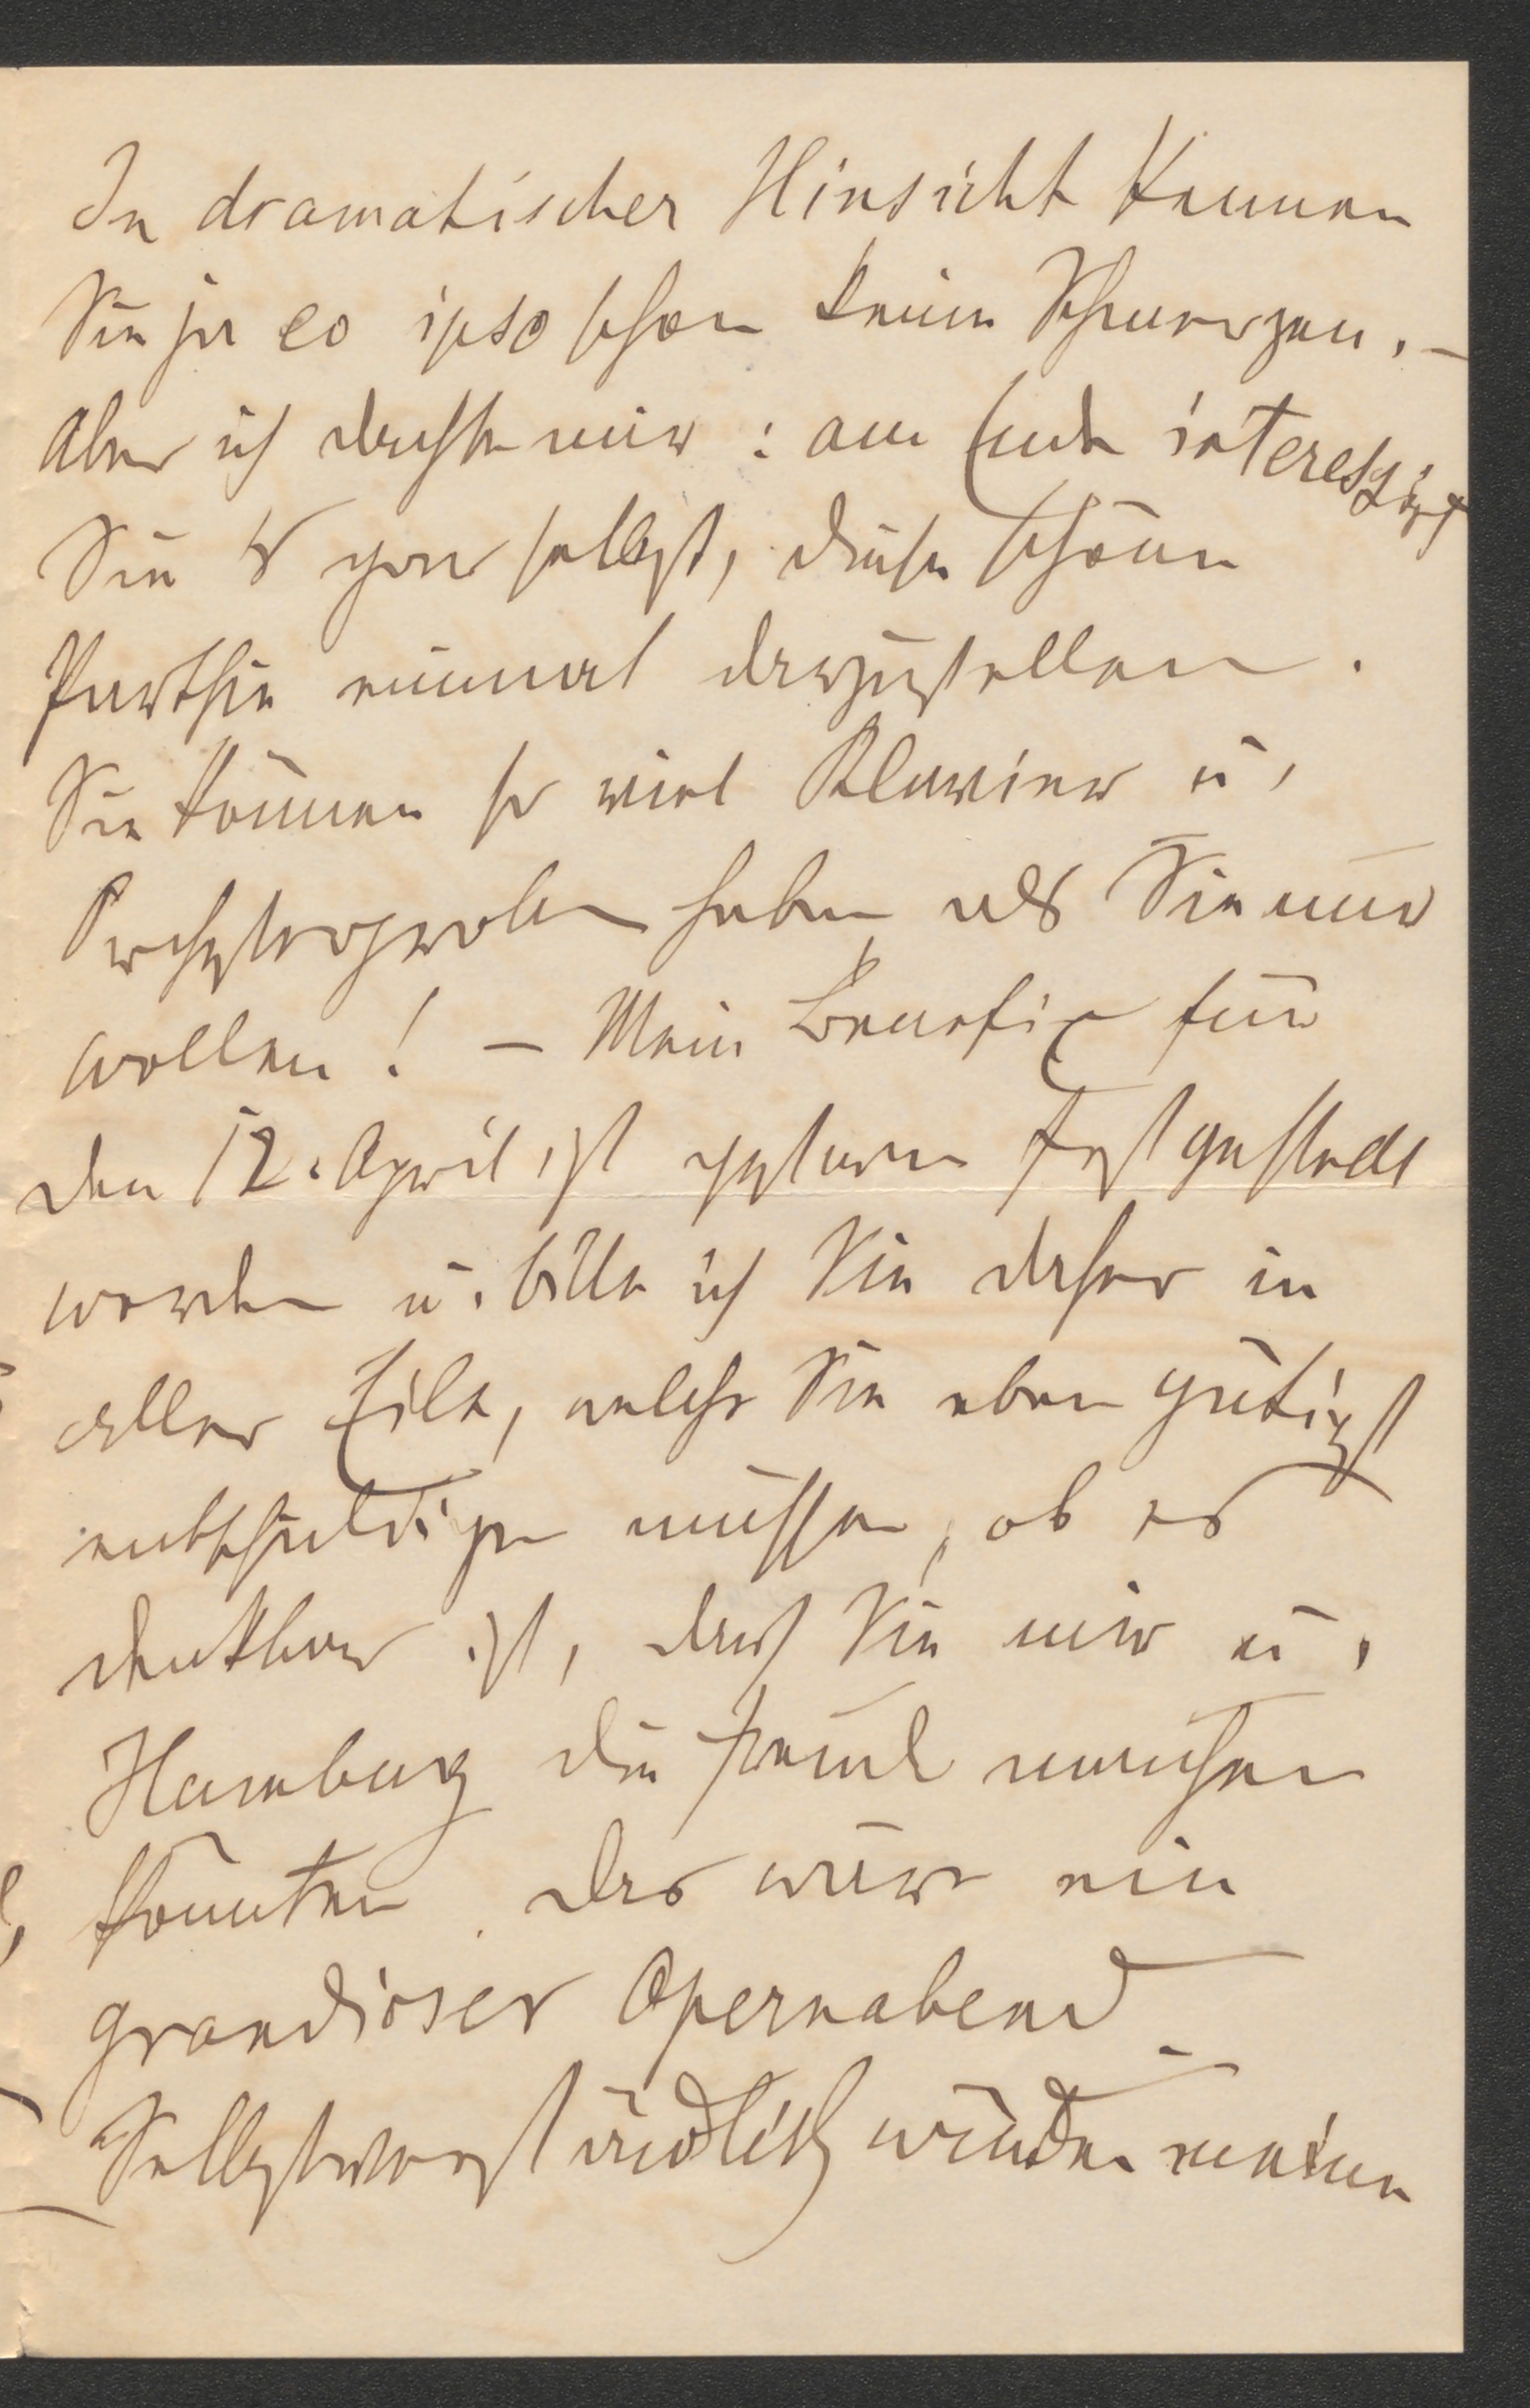 In dramatischer Hinsicht kennen
Sie ja eo ipso schon keine Schmerzen. –
Aber ich dachte mir: am Ende interessirt
Sie es gar selbst, diese schöne
Parthie einmal darzustellen.
Sie können so viel Klavier u.
Orchesterproben haben als Sie nur
wollen! – Mein Benefiz für
den 12. April ist gestern festgestellt
worden u. bitte ich Sie daher in
aller Eile, welche Sie eben gütigst
entschuldigen müssen, ob es
denkbar ist, dass Sie mir u.
Hamburg die Freude machen
könnten. das wäre ein
grandioser Opernabend –
Selbstverständlich würden meine